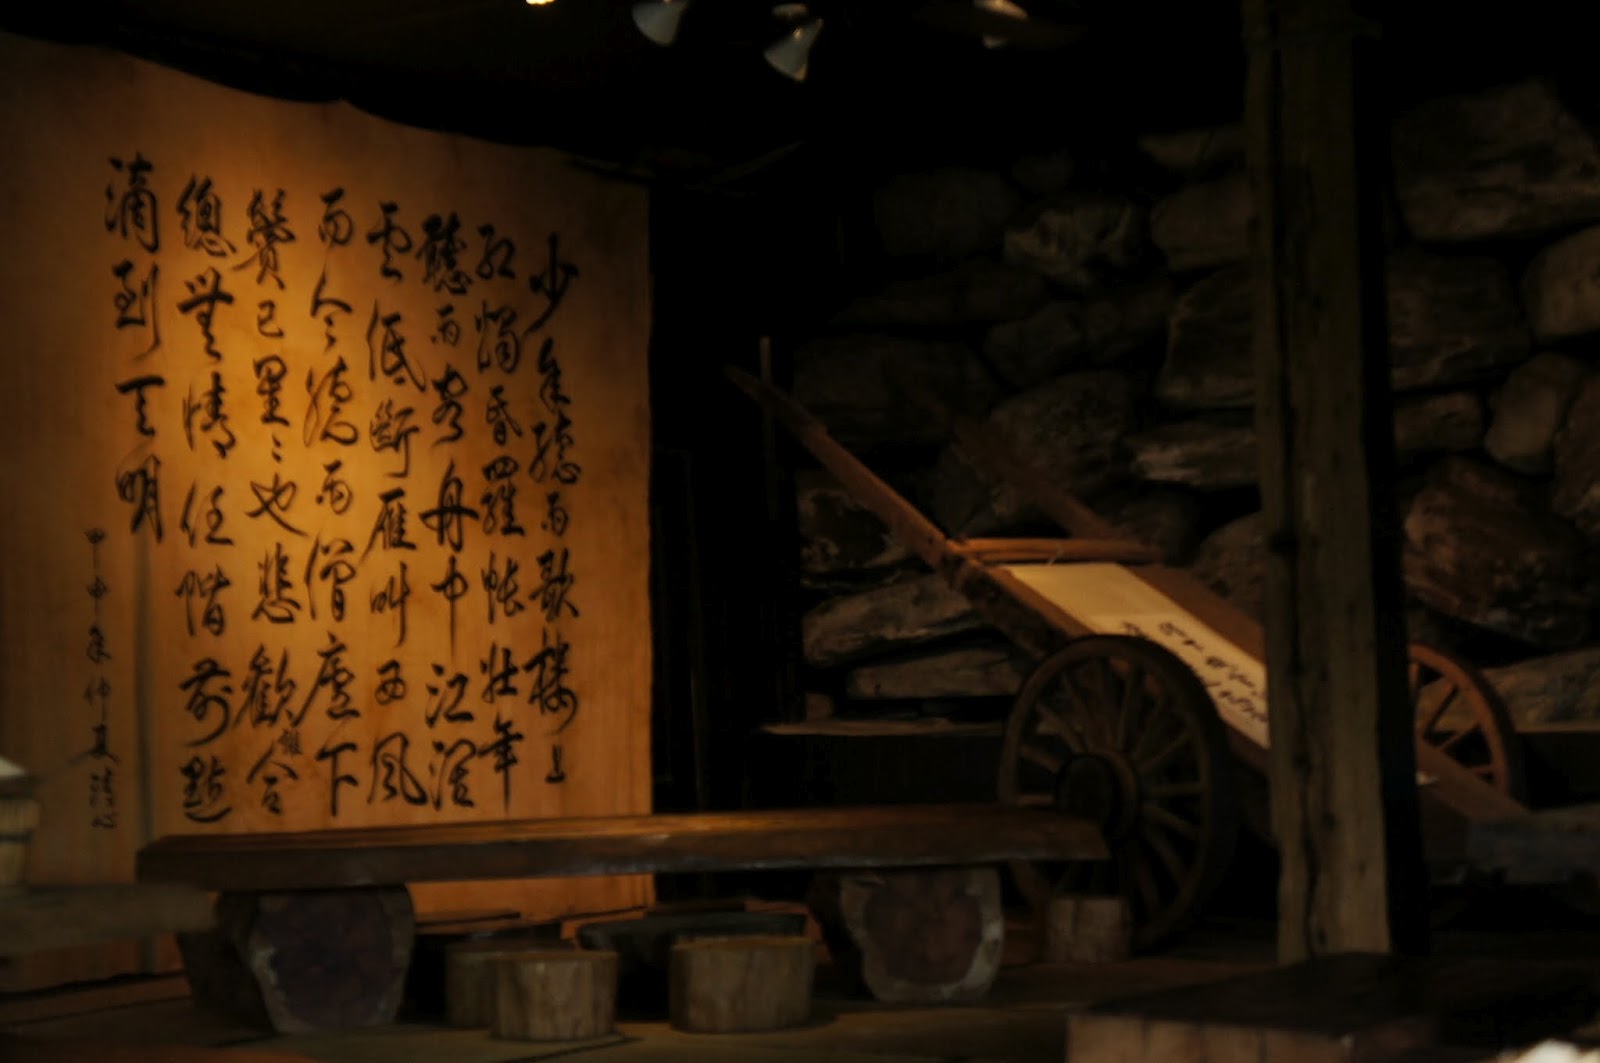 少年聽雨歌樓上
紅燭昏羅帳壯年
聽雨客舟中江闊
雲低斷雁叫西風
而今聽雨僧廬下
鬢已星〻也悲歡離合
總無情任階前點
滴到天明
甲申年仲夏